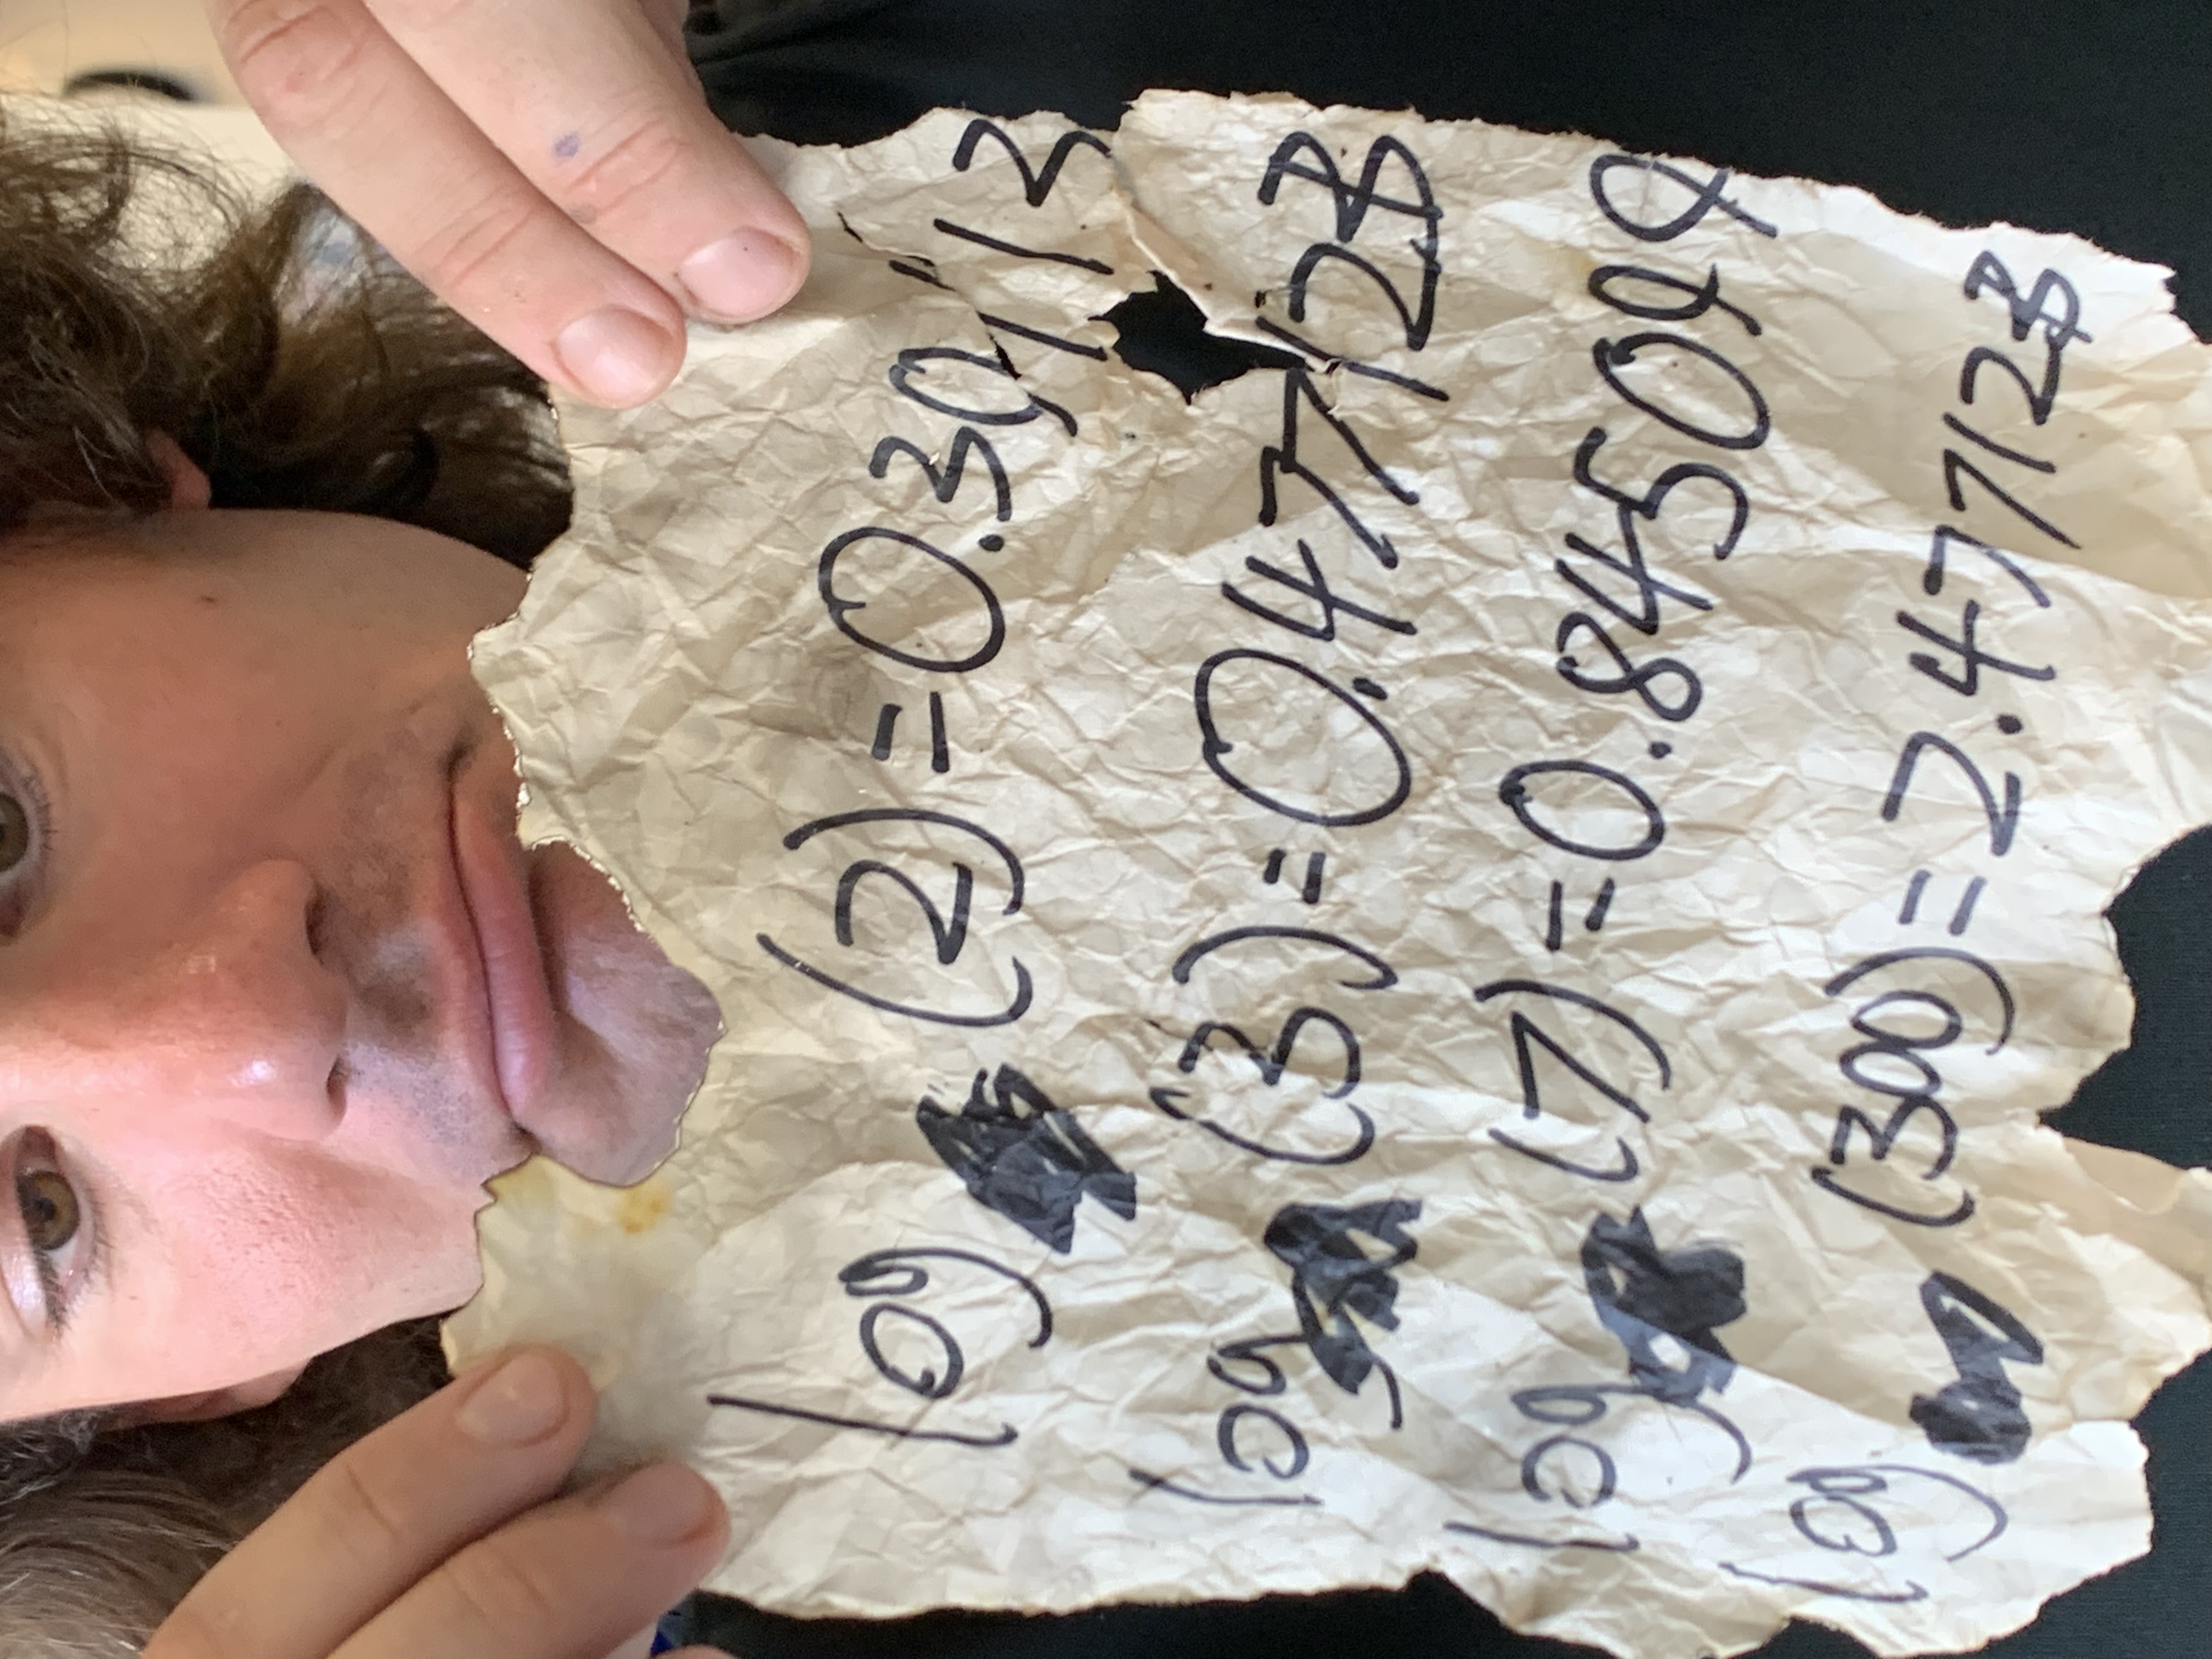 log (2)=0.30113
log (3)=0.477123
log (7)=0.845099
log (300)=2.477123